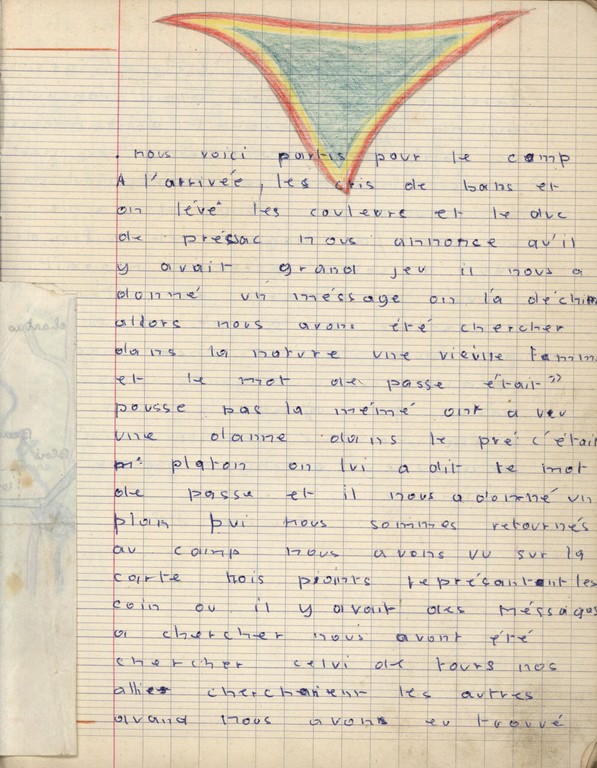 . nous voici partis pour le camp
A l'arrivée, les cris de bans et
on lévé les couleurs et le duc
de présac nous annonce qu'il
y avait grand jeu il nous a
donné un méssage on l'a déchi
allors nous avons été chercher
dans la nature une vieille
et le mot de passe était"
pousse pas la mémé ont a veu
une damme dans le pré c'étai
mr platon on lui a dit te mot
de passe et il nous a donné un
plan pui nous sommes retournés
au camp nous avons vu sur la
carte trois pioints représantent les
coin ou il y avait des méssages
a chercher nous avont été
chercher celui de tours nos
allier cherchaient les autres
quand nous avons eu trouvé